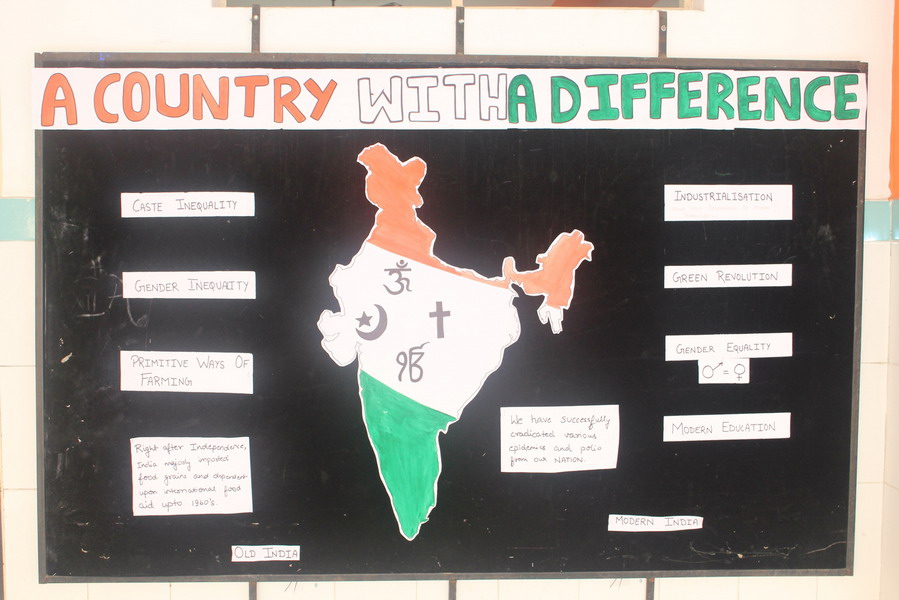 A COUNTRY WITH A DIFFERENCE
CASTE INEQUALITY
GENDER INEQUALITY
PRIMITIVE WAYS OF
FARMING
Right after Independence,
India majorly imported
food grains and dependent
upon international food
aid upto 1960's.
OLD INDIA
ॐ
ੴ
INDUSTRIALISATION
GREEN REVOLUTION
GENDER EQUALITY
♂ = ♀
MODERN EDUCATION
We have successfully
eradicated various
epidemics and polio
from our NATION.
MODERN INDIA